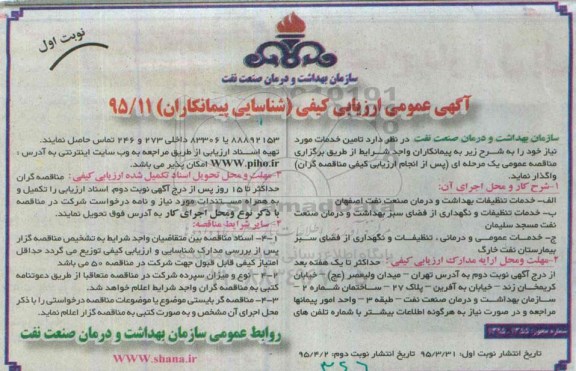 نوبت اول
سازمان بهداشت و درمان صنعت نفت
آگهی عمومی ارزیابی کیفی (شناسایی پیمانکاران) ۹۵/۱۱
سازمان بهداشت و درمان صنعت نفت در نظر دارد تامین خدمات مورد
نیاز خود را به شرح زیر به پیمانکاران واجد شرایط از طریق برگزاری
مناقصه عمومی یک مرحله ای (پس از انجام ارزیابی کیفی مناقصه گران)
واگذار نماید.
۱-شرح کار و محل اجرای آن:
الف- خدمات تنظیفات بهداشت و درمان صنعت نفت اصفهان
ب- خدمات تنظیفات و نگهداری از فضای سبز بهداشت و درمان صنعت
نفت مسجد سلیمان
ج- خدمات عمومی و درمانی، تنظیفات و نگهداری از فضای سبز
بیمارستان نفت خارگ
۲-مهلت ومحل ارایه مدارک ارزیابی کیفی: حداکثر تا یک هفته بعد
از درج آگهی نوبت دوم به آدرس تهران - میدان ولیعصر (عج) - خیابان
کریمخان زند - خیابان به آفرین - پلاک ۲۷ - ساختمان شماره ۲ -
سازمان بهداشت و درمان صنعت نفت - طبقه ۳ - واحد امور پیمانها
مراجعه و در صورت نیاز به هرگونه اطلاعات بیشتر با شماره تلفن های
۸۸۸۹۲۱۵۳ یا ۸۳۳۰۶ داخلی ۲۷۳ و ۲۴۶ تماس حاصل نمایند.
تهیه اسناد ارزیابی از طریق مراجعه به وب سایت اینترنتی به آدرس:
www.piho.ir امکان پذیر می باشد.
۳-مهلت و محل تحویل اسناد تکمیل شده ارزیابی کیفی: مناقصه گران
حداکثر تا ۱۵ روز پس از درج آگهی نوبت دوم، اسناد ارزیابی را تکمیل و
به همراه مستندات مورد نیاز و نامه درخواست شرکت در مناقصه
با ذکر نوع ومحل اجرای کار به آدرس فوق تحویل نمایند.
۴- سایر شرایط مناقصه:
۴-۱- اسناد مناقصه بین متقاضیان واجد شرایط به تشخیص مناقصه گزار
پس از بررسی مدارک شناسایی و ارزیابی کیفی توزیع می گردد حداقل
امتیاز کیفی قابل قبول جهت شرکت در مناقصه ۵۰ می باشد
۴-۲- نوع و میزان سپرده شرکت در مناقصه متعاقبا از طریق دعوتنامه
کتبی به مناقصه گران واجد شرایط اعلام خواهد شد.
۴-۳- مناقصه گر بایستی موضوع یا موضوعات مناقصه درخواستی را با ذکر
محل اجرای آن مشخص و به صورت کتبی به مناقصه گزار اعلام نماید.
روابط عمومی سازمان بهداشت و درمان صنعت نفت
www.shana.ir
شماره مجوز: ۱۳۹۵.۱۳۵۵
تاریخ انتشار نوبت اول: ۹۵/۳/۳۱ تاریخ انتشار نوبت دوم: ۹۵/۴/۲